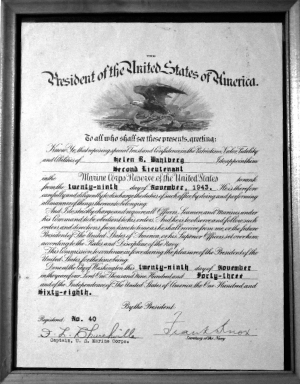 THE
President of the United States of America.
To all who shall see these presents, greeting:
Know Ye, that reposing special Trust and Confidence in the Patriotism, Valor, Fidelity
and Abilities of Helen R. Wahlberg I do appoint her
Second Lieutenant
in the Marine Corps Reserve of the United States to rank
from the twenty-ninth day of November, 1943. He is therefore
carefully and diligently to discharge the duties of such office by doing and performing
all manner of things thereunto belonging.
And I do strictly charge and require all Officers, Seamen and Marines under
his Command to be obedient to his orders. And he is to observe and follow such
orders and directions from time to time as he shall receive from me, or the future
President of The United States of America or his Superior Officers set over him
according to the Rules and Discipline of the Navy.
This Commission to continue in force during the pleasure of the President of the
United States for the time being.
Done at the City of Washington this twenty-ninth day of November
in the year of our Lord One Thousand Nine Hundred and Forty-three
and of the Independence of The United States of America the One Hundred and
Sixty-eighth.
By the President:
Registered No. 40
Frank Knox
Captain, U. S. Marine Corps.
Secretary of the Navy.